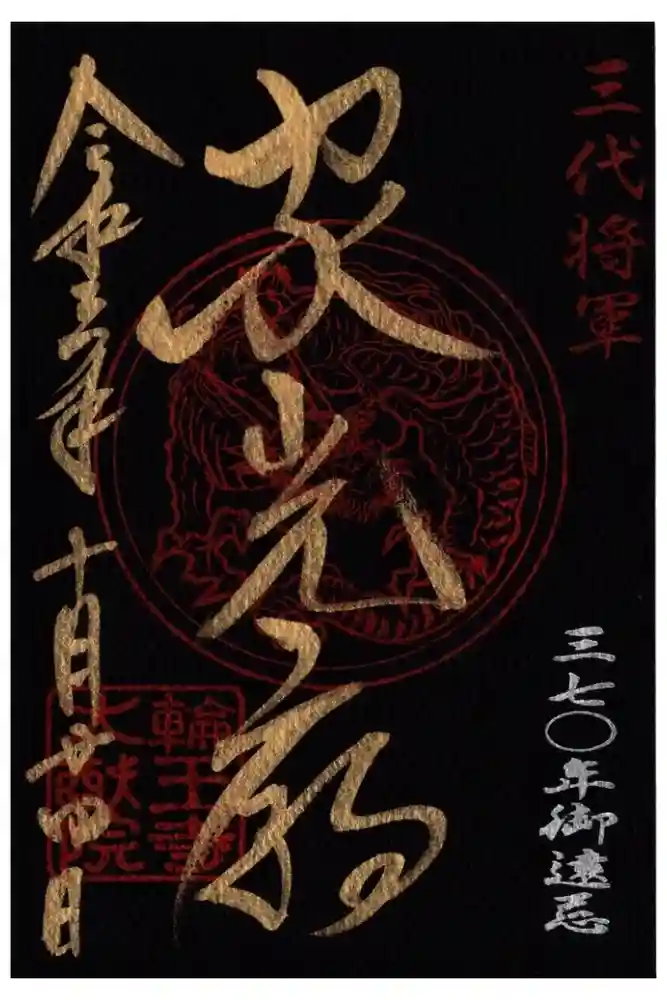 三代将軍
三七〇年御遠忌
家光廟
令和三年十月廿四日
輪王寺
大猷院